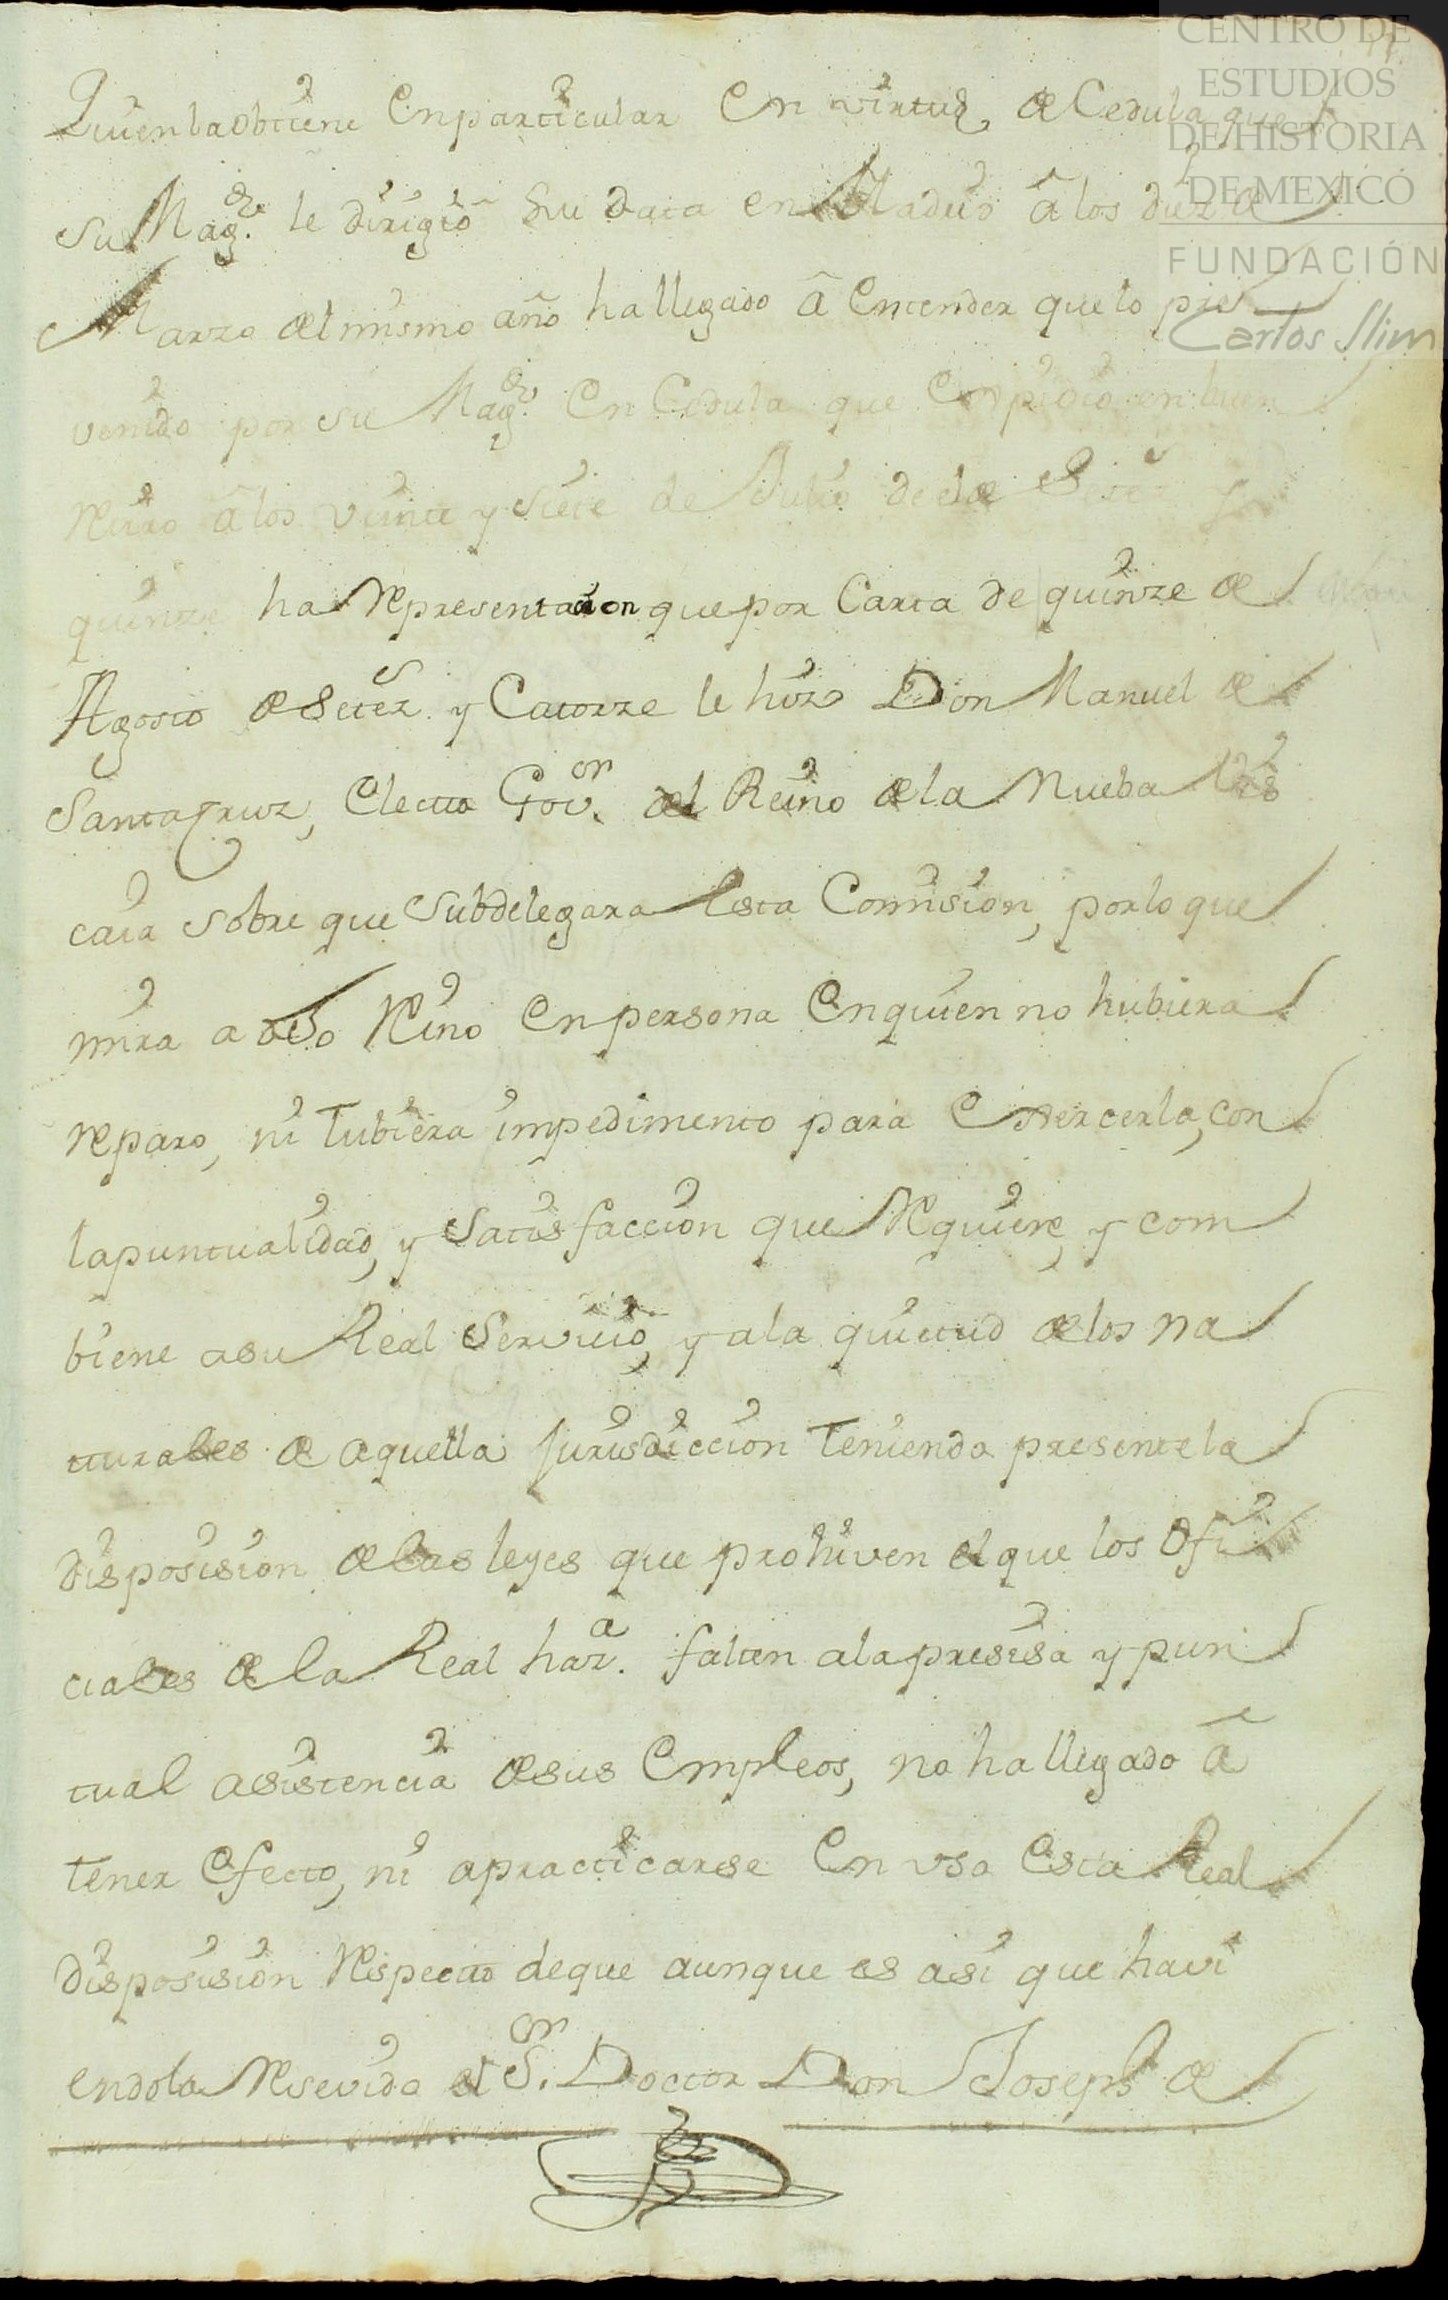 CENTRO DE
ESTUDIOS
DE HISTORIA
DE MEXICO
FUNDACIÓN
Carlos Slim
Quien la obtiene en particular En virtud de Cedula que
Su Magd. le dirigió su data en Madrid â los diez de
Marzo del mismo año ha llegado â Entender que lo pre
venido por su Magd. En Cedula que Expidio en buen
Retiro â los veinte y siete de Julio de
quinze ha representacion que por Carta de quinze de
Agosto de Setez. y Catorze le hizo Don Manuel de
Santa Cruz, Electo Govor. del Reino de la Nueba Vis
caia sobre que subdelegara Esta Comision, por lo que
mira a dho Reino En persona En quien no hubiera
reparo, ni tubiera impedimento para Exercerla, con
la puntualidad, y satisfaccion que Requiere, y com
biene a su Real Servicio, y a la quietud de los na
turales de aquella Jurisdiccion teniendo presente la
disposision de las leyes que prohiven el que los Ofi
ciales de la Real haza. falten a la presisa y pun
tual asistencia de sus Empleos, no ha llegado â
tener Efecto, ni a practicarse En uso Esta Real
disposision Respecto de que aunque es asi que havi
endola Resevido el Sor. Doctor Don Joseph de